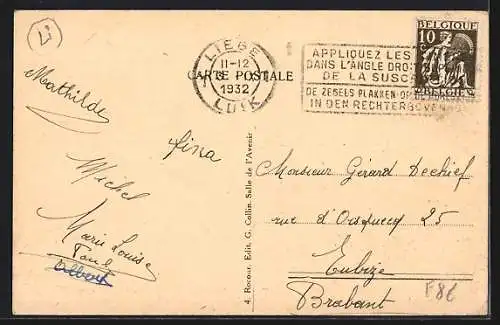 Li
LIEGE
11-12
1932
LUIK
CARTE POSTALE
APPLIQUEZ LES
DANS L'ANGLE DROIT
DE LA SUSC
DE ZEGELS PLAKKEN OP
IN DEN RECHTERBOVEN
BELGIQUE
10
BELGIË
Mathilde
fina
Michel
Marie Louise
Paul
Albert
4. Rocour, Edit. G. Collin, Salle de l'Avenir
Monsieur Gérard Dechief
rue d'Oisquercq 25
Tubize
Brabant
F86